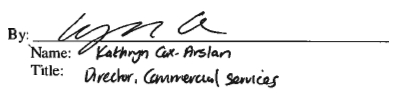 By:
Name: Kathryn Cox-Arslan
Title: Director, Commercial services